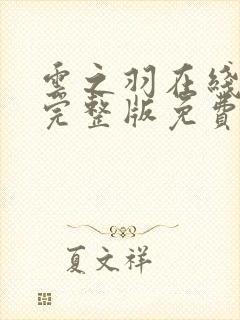 雲之羽在綫
完整版免費
夏文祥